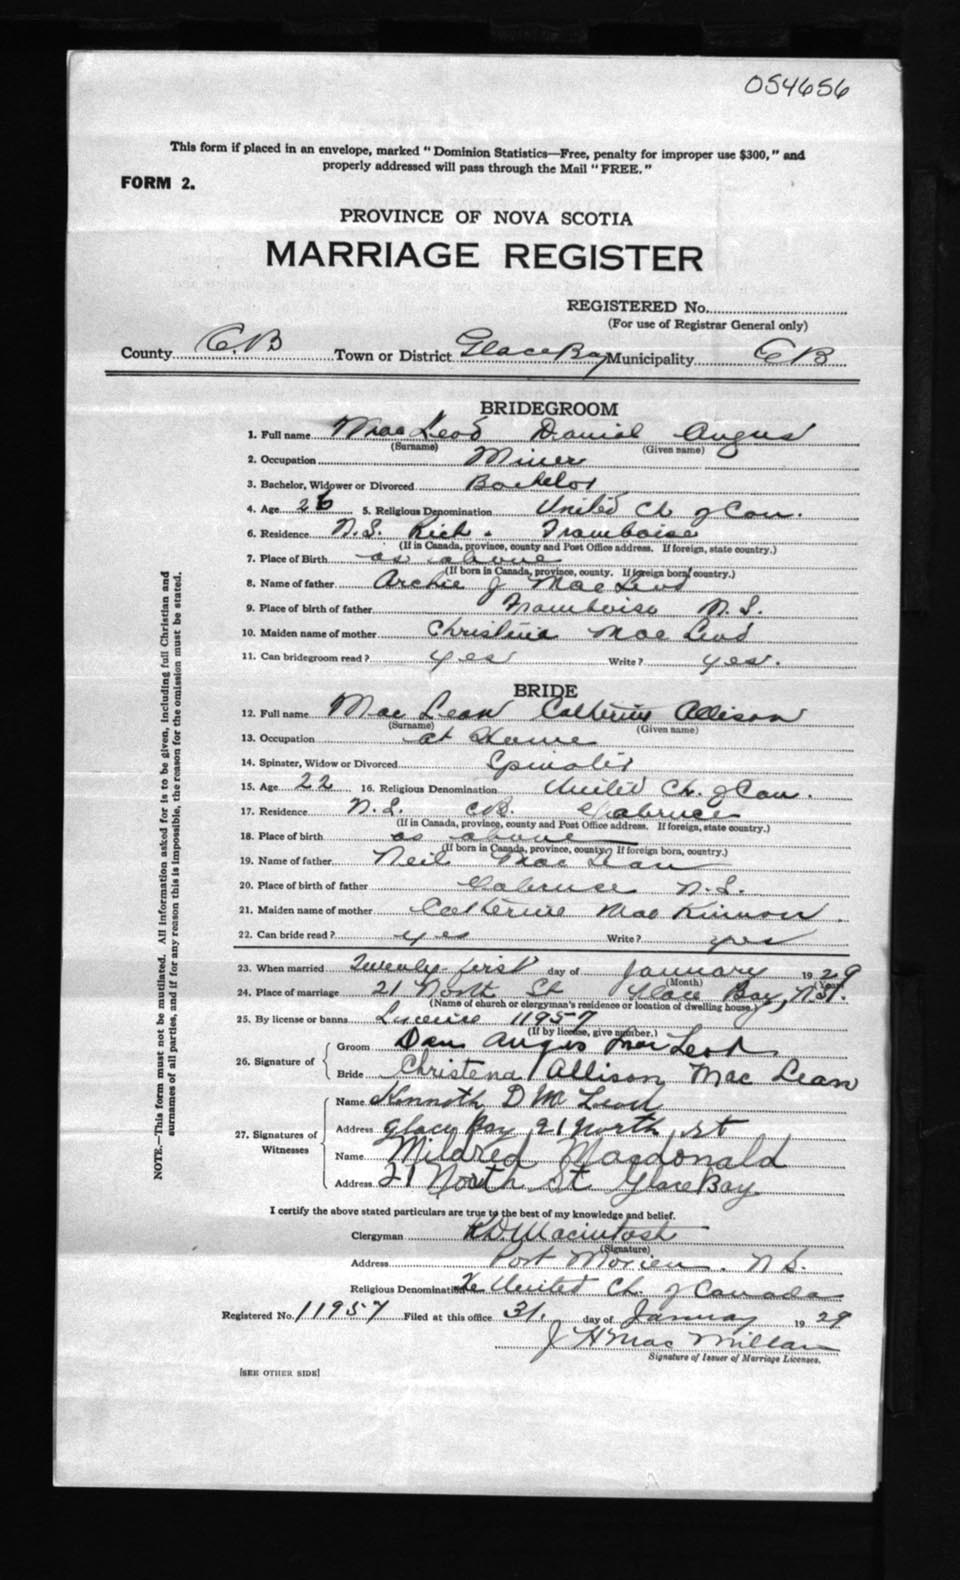 054656
This form if placed in an envelope, marked "Dominion Statistics—Free, penalty for improper use $300," and
properly addressed will pass through the Mail "FREE."
FORM 2.
PROVINCE OF NOVA SCOTIA
MARRIAGE REGISTER
REGISTERED No.
(For use of Registrar General only)
County C.B Town or District Glace Bay Municipality CB
BRIDEGROOM
1. Full name MacLeod Daniel Angus
(Surname) (Given name)
2. Occupation Miner
3. Bachelor, Widower or Divorced Bachelor
4. Age 26 5. Religious Denomination United Ch. of Can.
6. Residence N.S. Rich. Framboise
(If in Canada, province, county and Post Office address. If foreign, state country.)
7. Place of Birth as above
(If born in Canada, province, county. If foreign born, country.)
8. Name of father Archie J MacLeod
9. Place of birth of father Framboise N.S.
10. Maiden name of mother Christina MacLeod
11. Can bridegroom read? yes Write? yes.
BRIDE
12. Full name MacLean Catherine Allison
(Surname) (Given name)
13. Occupation at Home
14. Spinster, Widow or Divorced Spinster
15. Age 22 16. Religious Denomination United Ch. of Can.
17. Residence N.S. C.B. Gabruse
(If in Canada, province, county and Post Office address. If foreign, state country.)
18. Place of birth as above
(If born in Canada, province, county. If foreign born, country.)
19. Name of father Neil MacLean
20. Place of birth of father Gabruse N.S.
21. Maiden name of mother Catherine MacKinnon.
22. Can bride read? yes Write? yes
23. When married Twenty-first day of January 1929
(Month) (Year)
24. Place of marriage 21 North St Glace Bay, N.S.
(Name of church or clergyman's residence or location of dwelling house.)
25. By license or banns Licence 11957
(If by license, give number.)
26. Signature of
Groom Dan Angus MacLeod
Bride Christena Allison MacLean
27. Signatures of Witnesses
Name Kenneth D McLeod
Address Glace Bay 21 North St
Name Mildred Macdonald
Address 21 North St Glace Bay
I certify the above stated particulars are true to the best of my knowledge and belief.
Clergyman K.D. Macintosh
(Signature)
Address Port Morien. N.S.
Religious Denomination The United Ch. of Canada
Registered No. 11957 Filed at this office 31. day of January 1929
J H MacMillan
Signature of Issuer of Marriage Licenses.
[SEE OTHER SIDE]
NOTE.—This form must not be mutilated. All information asked for is to be given, including full Christian and
surnames of all parties, and if for any reason this is impossible, the reason for the omission must be stated.